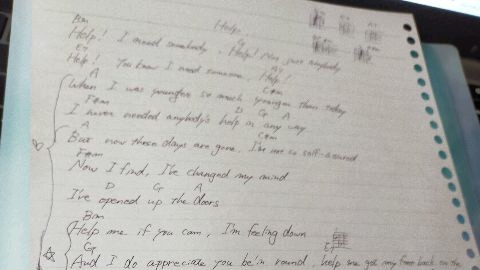 Help
Bm
Help! I need somebody, Help! Not just anybody
E7
Help! You know I need someone, Help!
A C#m
When I was younger so much younger than today
F#m D G A
I never needed anybody's help in any way
A C#m
But now these days are gone, I'm not so self-assured
F#m
Now I find, I've changed my mind
D G A
I've opened up the doors
Bm
Help me if you can, I'm feeling down
G
And I do appreciate you be'in round, help me get my feet back on the